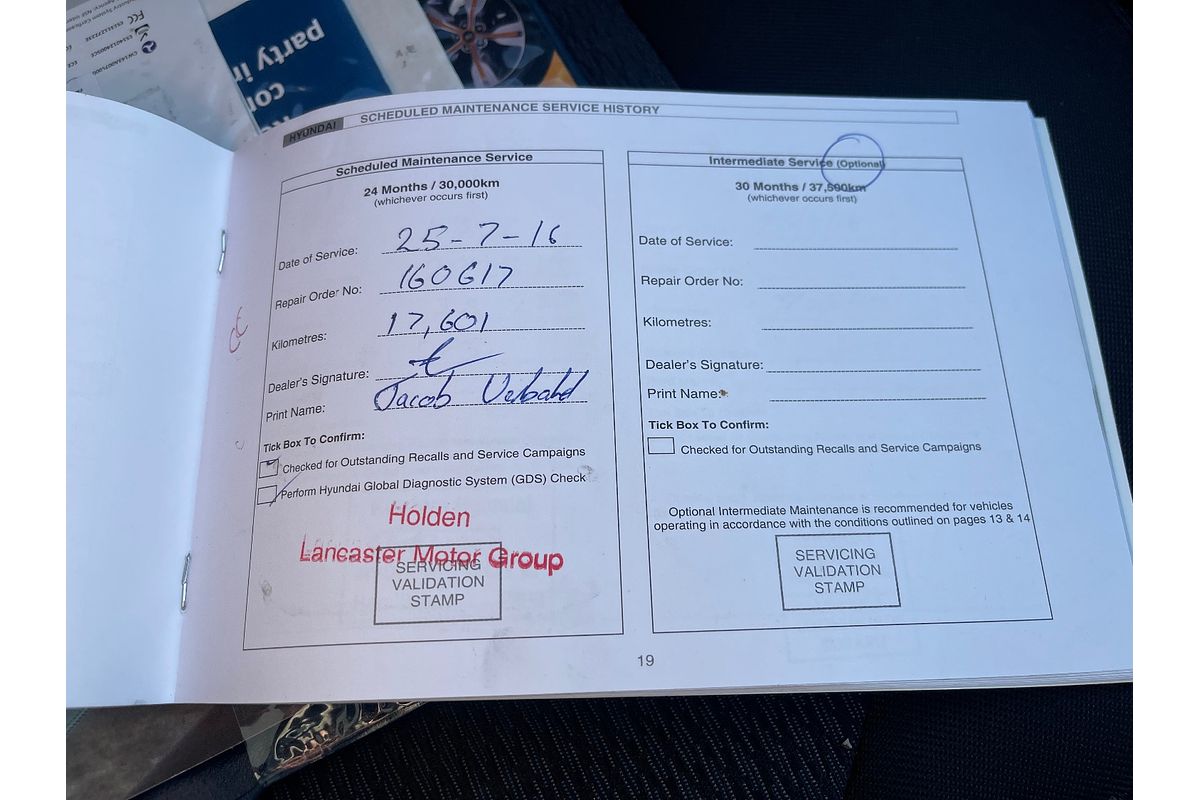 party in
con
FCC
HYUNDAI SCHEDULED MAINTENANCE SERVICE HISTORY
Scheduled Maintenance Service
24 Months / 30,000km
(whichever occurs first)
Date of Service: 25-7-16
Repair Order No: 160617
Kilometres: 17,601
Dealer's Signature:
Print Name: Jacob
Tick Box To Confirm:
Checked for Outstanding Recalls and Service Campaigns
Perform Hyundai Global Diagnostic System (GDS) Check
Holden
Lancaster Motor Group
SERVICING
VALIDATION
STAMP
Intermediate Service (Optional)
30 Months / 37,500km
(whichever occurs first)
Date of Service:
Repair Order No:
Kilometres:
Dealer's Signature:
Print Name:
Tick Box To Confirm:
Checked for Outstanding Recalls and Service Campaigns
Optional Intermediate Maintenance is recommended for vehicles
operating in accordance with the conditions outlined on pages 13 & 14
SERVICING
VALIDATION
STAMP
19